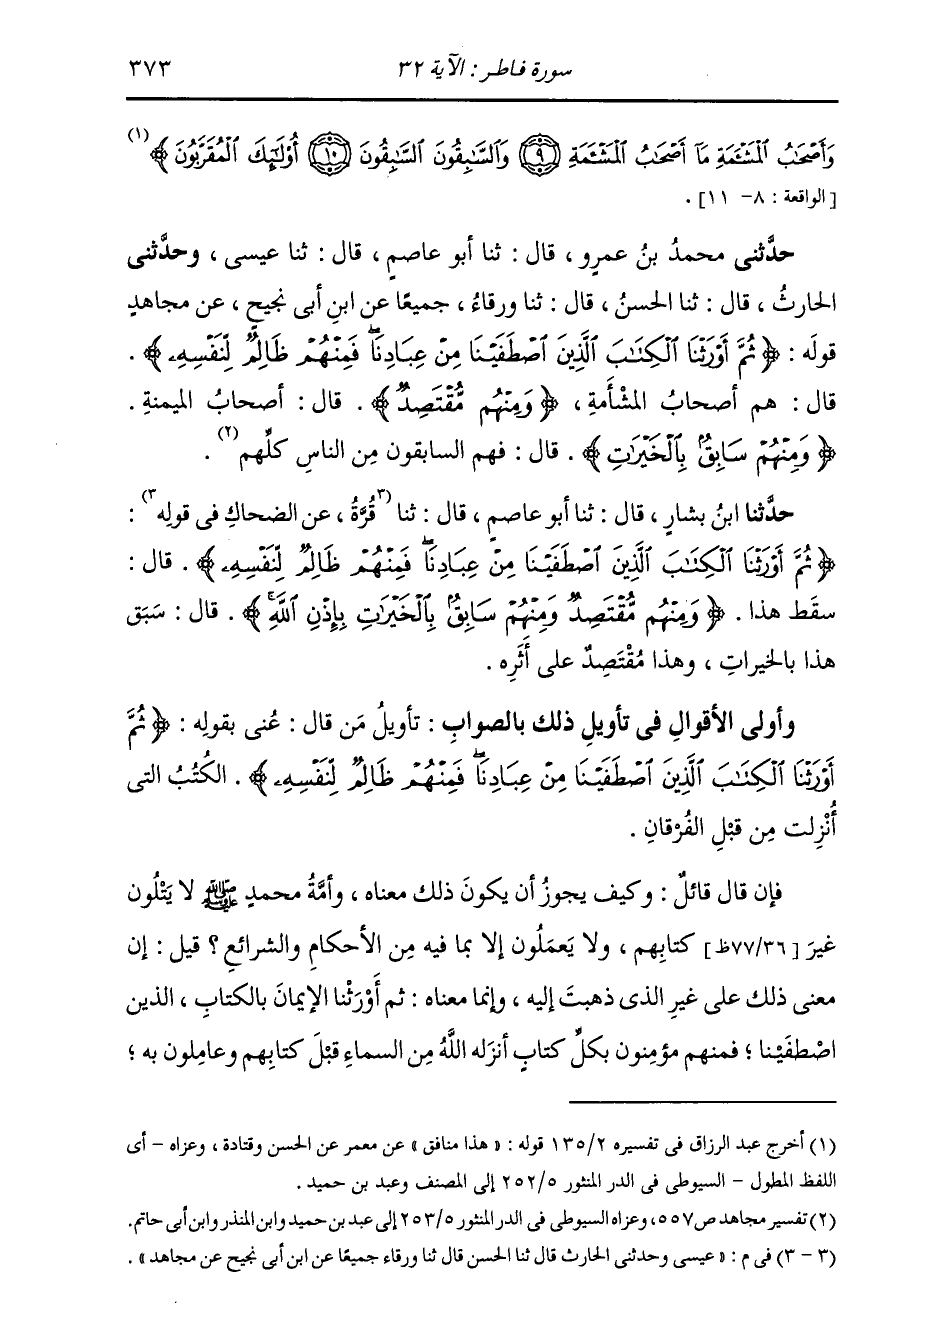 سورة فاطر : الآية ٣٢ ٣٧٣
وَأَصْحَٰبُ ٱلْمَشْـَٔمَةِ مَآ أَصْحَٰبُ ٱلْمَشْـَٔمَةِ ۝٩ وَٱلسَّٰبِقُونَ ٱلسَّٰبِقُونَ ۝١٠ أُو۟لَٰٓئِكَ ٱلْمُقَرَّبُونَ ﴾(١)
[الواقعة : ٨- ١١] .
حدَّثنى محمدُ بنُ عمرٍو ، قال : ثنا أبو عاصمٍ ، قال : ثنا عيسى ، وحدَّثنى
الحارثُ ، قال : ثنا الحسنُ ، قال : ثنا ورقاءُ ، جميعًا عن ابنِ أبى نجيحٍ ، عن مجاهدٍ
قولَه : ﴿ ثُمَّ أَوْرَثْنَا ٱلْكِتَٰبَ ٱلَّذِينَ ٱصْطَفَيْنَا مِنْ عِبَادِنَاۖ فَمِنْهُمْ ظَالِمٌ لِّنَفْسِهِۦ ﴾ .
قال : هم أصحابُ المشْأَمةِ ، ﴿ وَمِنْهُم مُّقْتَصِدٌ ﴾ . قال : أصحابُ الميمنةِ .
﴿ وَمِنْهُمْ سَابِقٌۢ بِٱلْخَيْرَٰتِ ﴾ . قال : فهم السابقون مِن الناسِ كلِّهم(٢) .
حدَّثنا ابنُ بشارٍ ، قال : ثنا أبو عاصمٍ ، قال : ثنا (٣قُرَّةُ ، عن الضحاكِ فى قولِه٣) :
﴿ ثُمَّ أَوْرَثْنَا ٱلْكِتَٰبَ ٱلَّذِينَ ٱصْطَفَيْنَا مِنْ عِبَادِنَاۖ فَمِنْهُمْ ظَالِمٌ لِّنَفْسِهِۦ ﴾ . قال :
سقَط هذا . ﴿ وَمِنْهُم مُّقْتَصِدٌ وَمِنْهُمْ سَابِقٌۢ بِٱلْخَيْرَٰتِ بِإِذْنِ ٱللَّهِۚ ﴾ . قال : سَبَق
هذا بالخيراتِ ، وهذا مُقْتَصِدٌ على أثَرِه .
وأولى الأقوالِ فى تأويلِ ذلك بالصوابِ : تأويلُ مَن قال : عُنى بقولِه : ﴿ ثُمَّ
أَوْرَثْنَا ٱلْكِتَٰبَ ٱلَّذِينَ ٱصْطَفَيْنَا مِنْ عِبَادِنَاۖ فَمِنْهُمْ ظَالِمٌ لِّنَفْسِهِۦ ﴾ . الكُتُبُ التى
أُنْزِلت مِن قَبْلِ الفُرْقانِ .
فإن قال قائلٌ : وكيف يجوزُ أن يكونَ ذلك معناه ، وأمَّةُ محمدٍ ﷺ لا يَتْلُون
غيرَ [٧٧/٣٦ظ] كتابِهم ، ولا يَعمَلُون إلا بما فيه مِن الأحكامِ والشرائعِ ؟ قيل : إن
معنى ذلك على غيرِ الذى ذهبتَ إليه ، وإنما معناه : ثم أَوْرَثْنا الإيمانَ بالكتابِ ، الذين
اصْطفَيْنا ؛ فمنهم مؤمِنون بكلِّ كتابٍ أنزَله اللَّهُ مِن السماءِ قبْلَ كتابِهم وعامِلون به ؛
(١) أخرج عبد الرزاق فى تفسيره ١٣٥/٢ قوله : « هذا منافق » عن معمر عن الحسن وقتادة ، وعزاه - أى
اللفظ المطول - السيوطى فى الدر المنثور ٢٥٢/٥ إلى المصنف وعبد بن حميد .
(٢) تفسير مجاهد ص٥٥٧، وعزاه السيوطى فى الدر المنثور ٢٥٣/٥ إلى عبد بن حميد وابن المنذر وابن أبى حاتم.
(٣ - ٣) فى م : « عيسى وحدثنى الحارث قال ثنا الحسن قال ثنا ورقاء جميعًا عن ابن أبى نجيح عن مجاهد » .